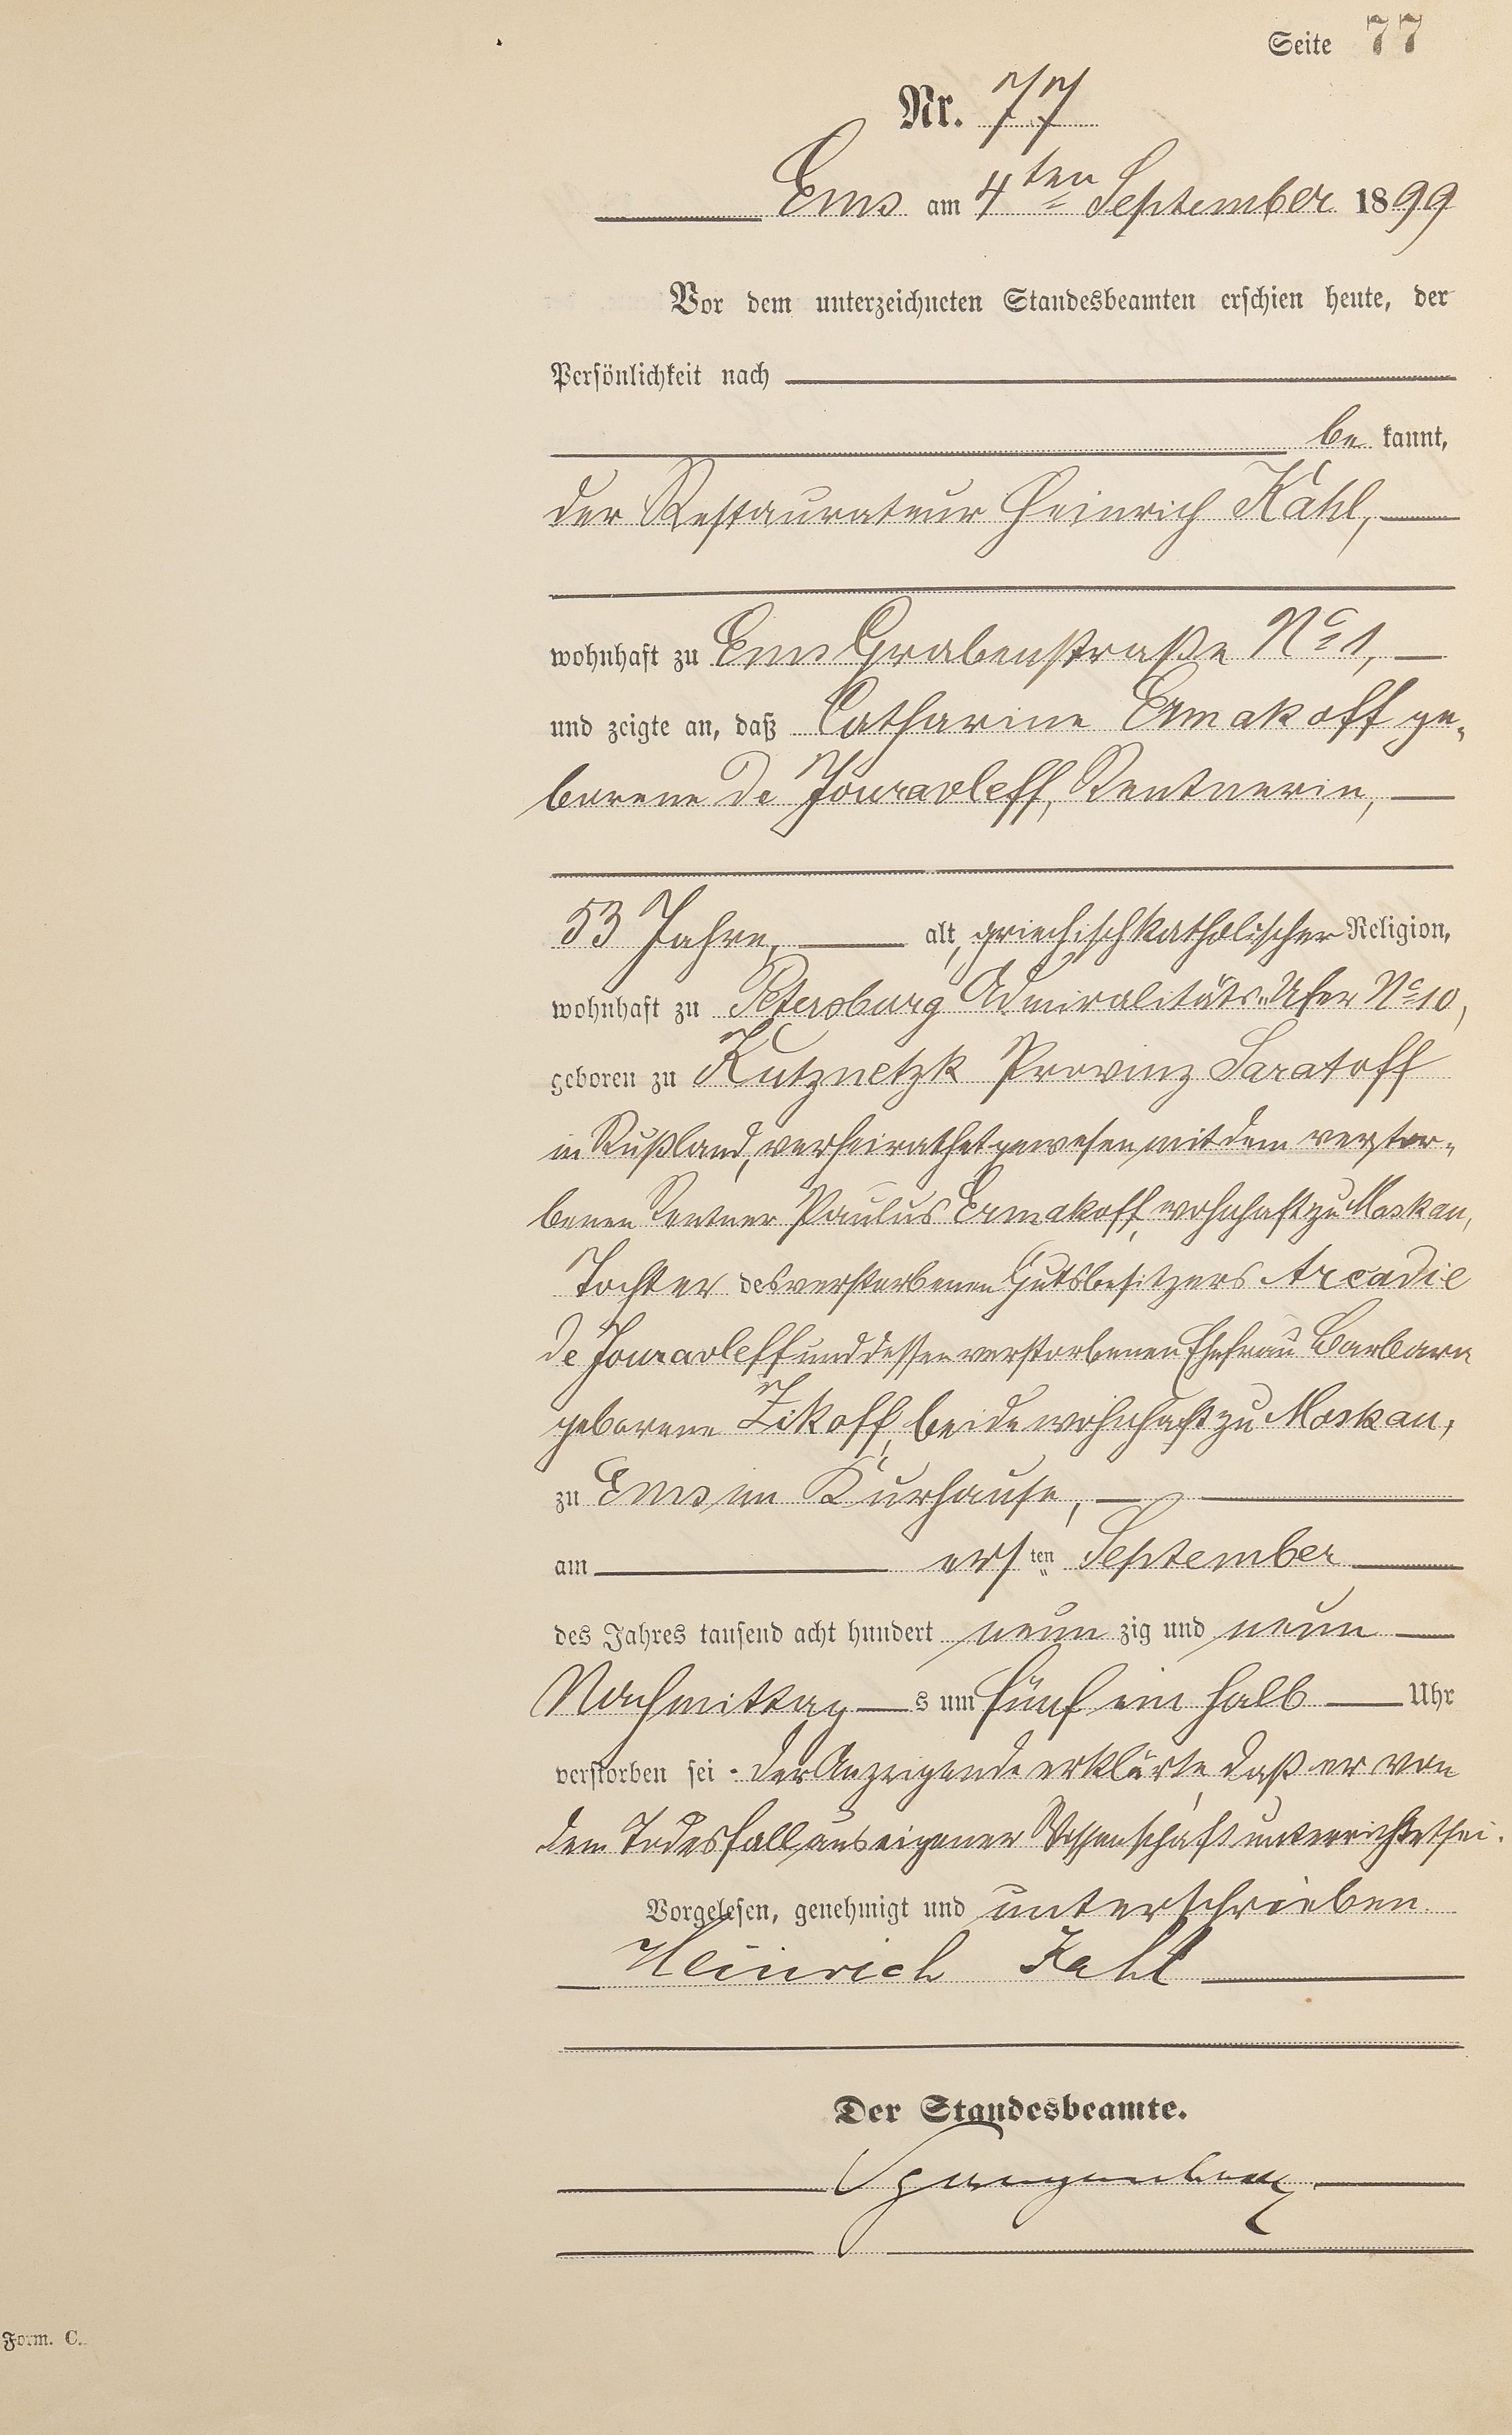 Seite 77
Nr. 77
Ems am 4ten September 1899
Vor dem unterzeichneten Standesbeamten erschien heute, der
Persönlichkeit nach
be kannt,
der Restaurateur Heinrich Kahl,
wohnhaft zu Ems Grabenstraße No 1,
und zeigte an, daß Catharine Ermakoff ge-
borene de Jouravleff, Rentnerin,
53 Jahre, alt, griechischkatholischer Religion,
wohnhaft zu Petersburg Admiralitäts-Ufer No 10,
geboren zu Kutznetzk Provinz Saratoff
in Rußland, verheirathet gewesen mit dem verstor-
benen Rentner Paulus Ermakoff, wohnhaft zu Moskau,
Tochter des verstorbenen Gutsbesitzers Arcadie
de Jouravleff und dessen verstorbenen Ehefrau Barbara
geborene Zikoff, beide wohnhaft zu Moskau,
zu Ems im Kurhause,
am ersten September
des Jahres tausend acht hundert neun zig und neun
Nachmittag s um fünf ein halb Uhr
verstorben sei. Der Anzeigende erklärte, daß er von
dem Todesfall aus eigener Wissenschaft unterrichtet sei.
Vorgelesen, genehmigt und unterschrieben
Heinrich Kahl
Der Standesbeamte.
Form. C.